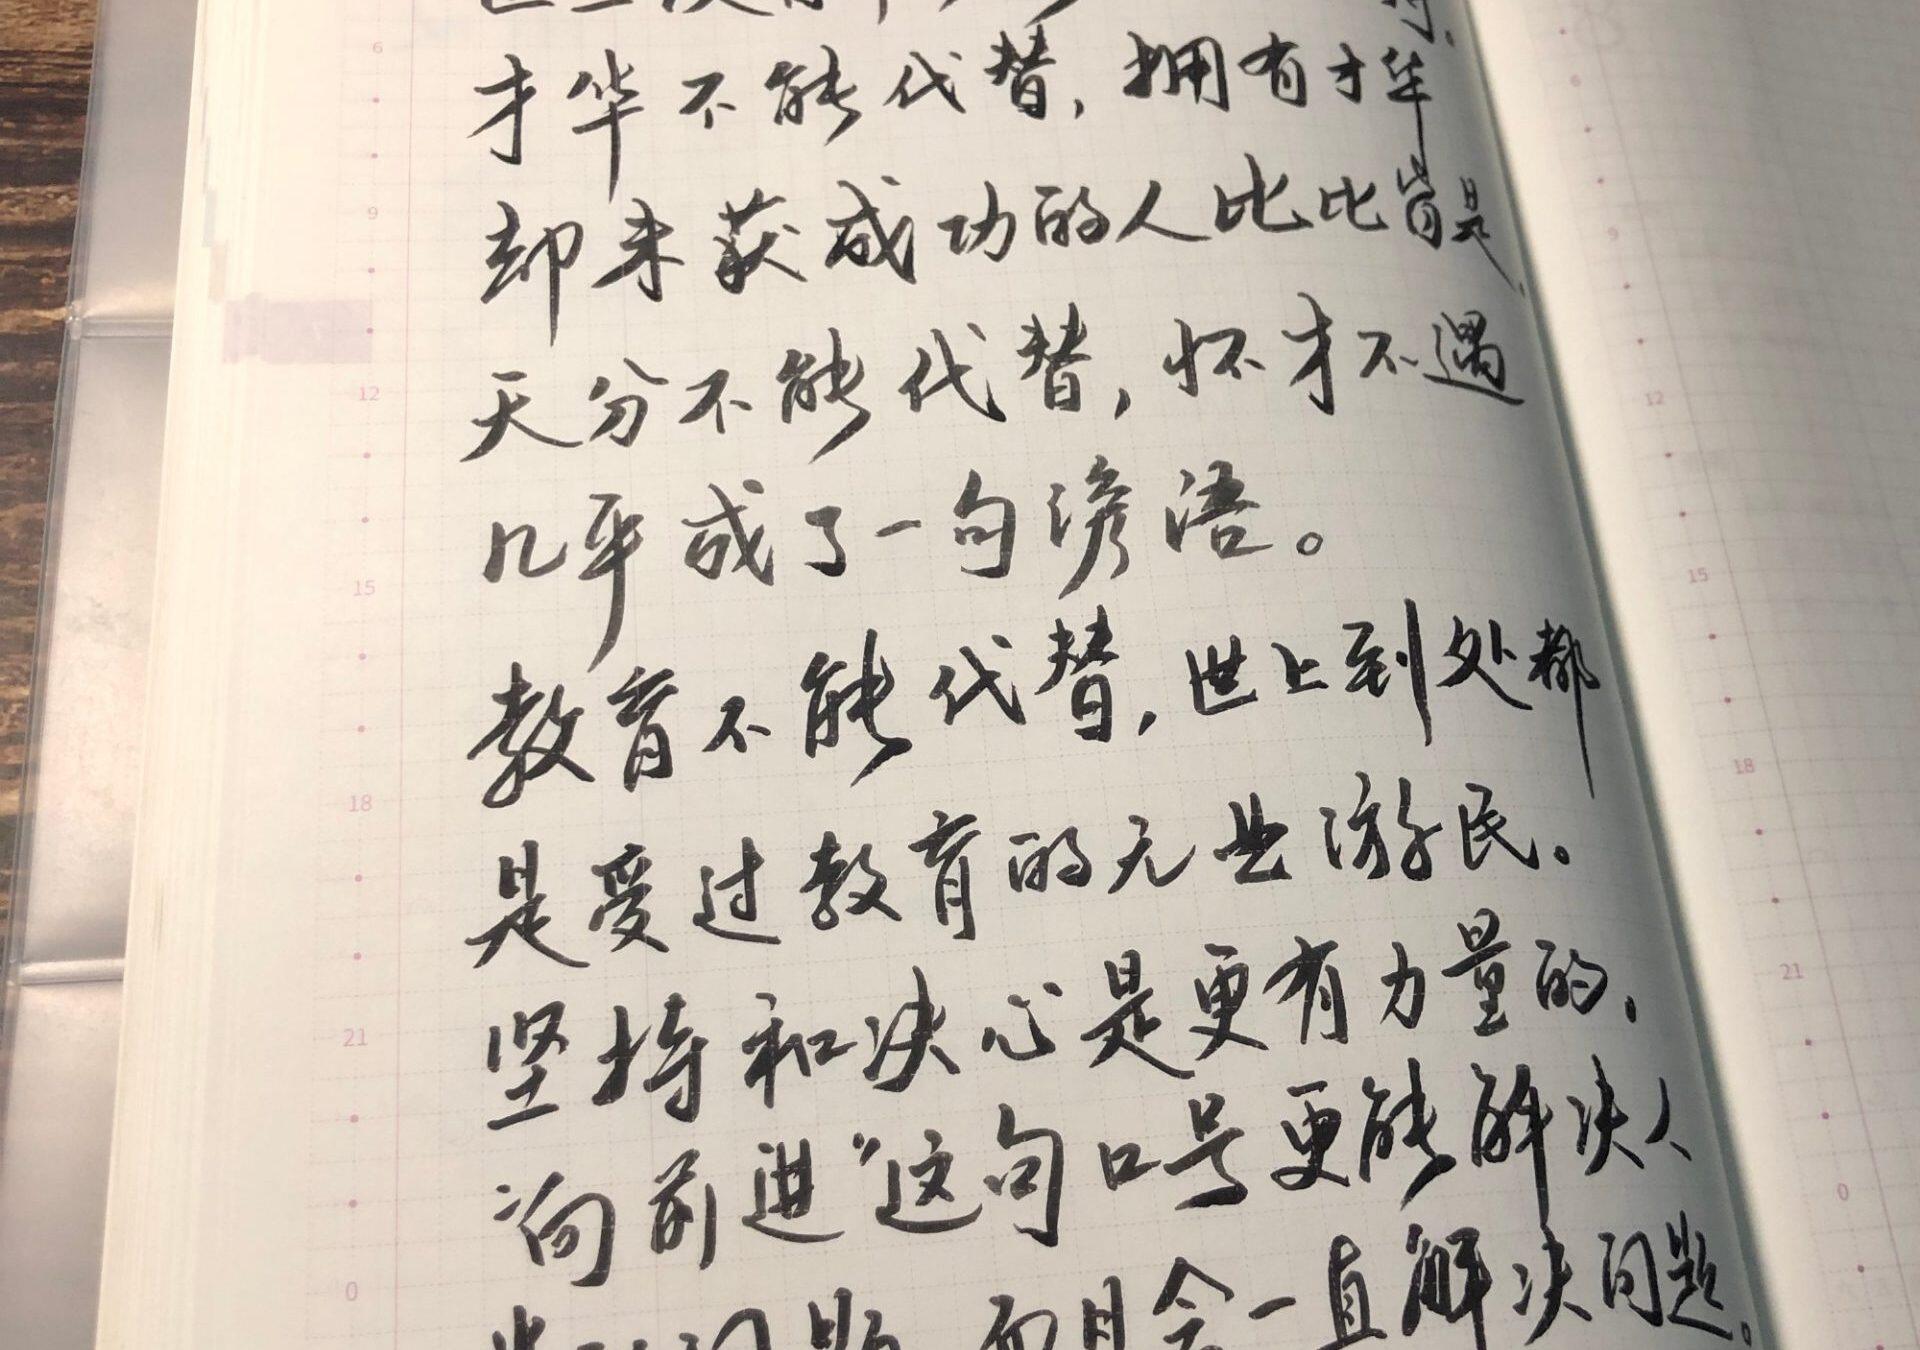 才华不能代替，拥有才华
却未获成功的人比比皆是，
天分不能代替，怀才不遇
几乎成了一句谚语。
教育不能代替，世上到处都
是受过教育的无业游民。
坚持和决心是更有力量的，
“向前进”这句口号更能解决人
问题，而且会一直解决问题。
6
9
12
15
18
21
0
6
9
12
15
18
21
0